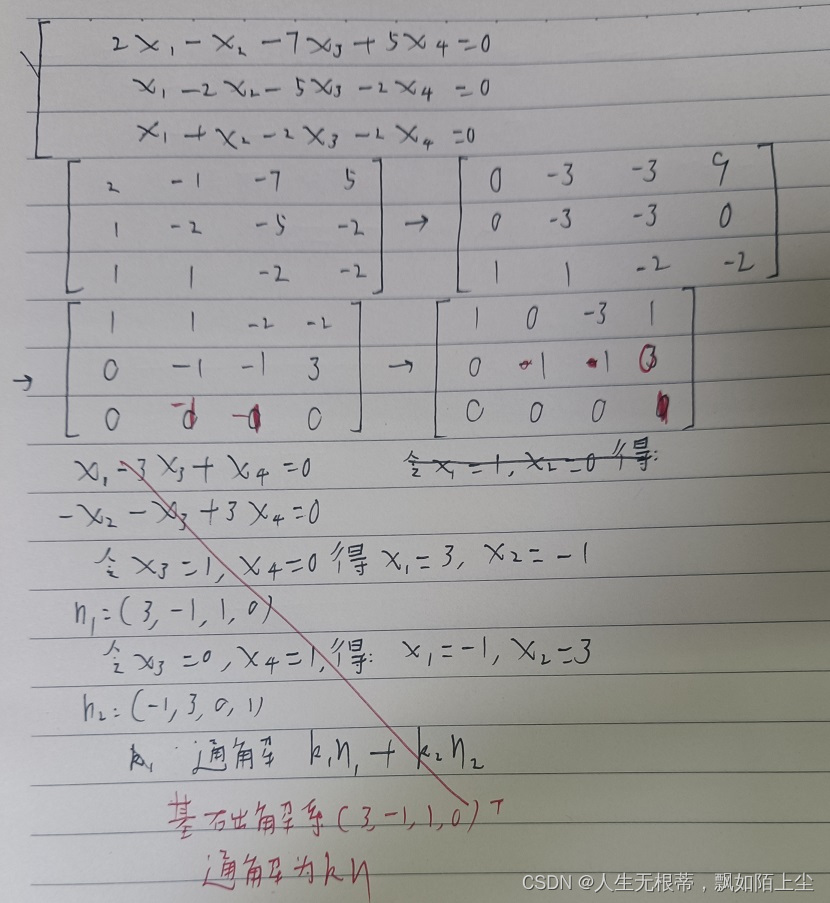 2x₁ - x₂ - 7x₃ + 5x₄ = 0
x₁ - 2x₂ - 5x₃ - 2x₄ = 0
x₁ + x₂ - 2x₃ - 2x₄ = 0
2 -1 -7 5 0 -3 -3 9
1 -2 -5 -2 → 0 -3 -3 0
1 1 -2 -2 1 1 -2 -2
1 1 -2 -2 1 0 -3 1
→ 0 -1 -1 3 → 0 -1 -1 3
0 0 0 0 0 0
x₁ - 3x₃ + x₄ = 0 令 x₁ = 1, x₂ = 0 得:
-x₂ - x₃ + 3x₄ = 0
令 x₃ = 1, x₄ = 0 得 x₁ = 3, x₂ = -1
η₁ = (3, -1, 1, 0)
令 x₃ = 0, x₄ = 1, 得: x₁ = -1, x₂ = 3
η₂ = (-1, 3, 0, 1)
k₁ 通解 k₁η₁ + k₂η₂
基础解系 (3, -1, 1, 0)ᵀ
通解为 kη
CSDN @人生无根蒂，飘如陌上尘